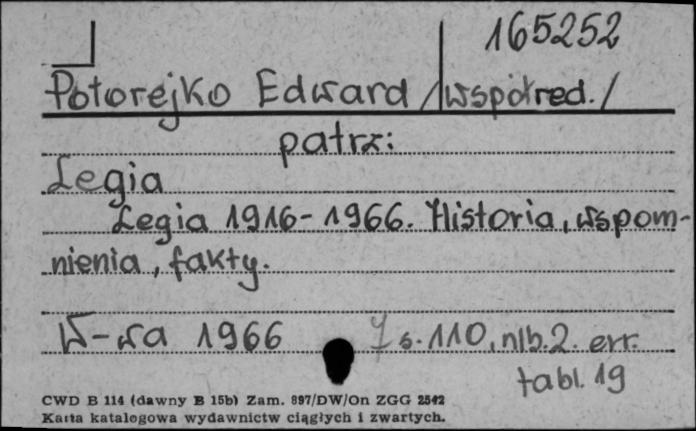 165252
Potorejko Edward /współred./
patrz:
Legia
Legia 1916-1966. Historia, wspom-
nienia, fakty.
W-wa 1966 s. 110, nlb. 2. err.
tabl. 19
CWD B 114 (dawny B 15b) Zam. 897/DW/On ZGG 2542
Karta katalogowa wydawnictw ciągłych i zwartych.